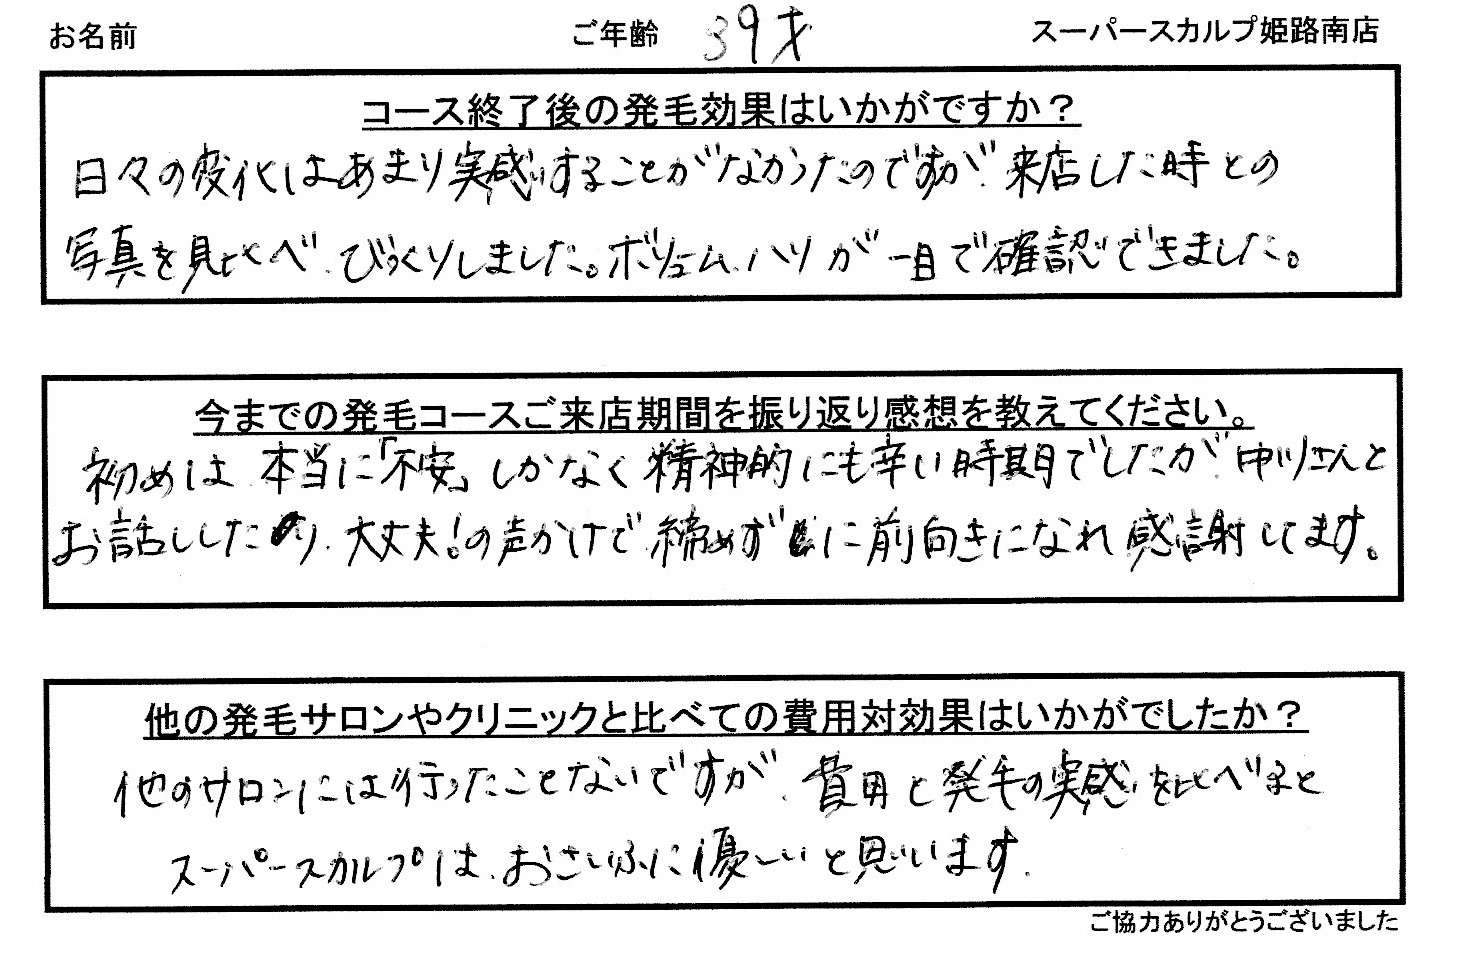 お名前 ご年齢 39才 スーパースカルプ姫路南店
コース終了後の発毛効果はいかがですか？
日々の変化はあまり実感することがなかったのですが、来店した時との
写真を見比べ、びっくりしました。ボリューム、ハリが一目で確認できました。
今までの発毛コースご来店期間を振り返り感想を教えてください。
初めは本当に「不安」しかなく精神的にも辛い時期でしたが、中川さんと
お話ししたり、大丈夫！の声かけで、締めずに前向きになれ感謝してます。
他の発毛サロンやクリニックと比べての費用対効果はいかがでしたか？
他のサロンには行ったことないですが、費用と発毛の実感を比べると
スーパースカルプは、おさいふに優しいと思います。
ご協力ありがとうございました